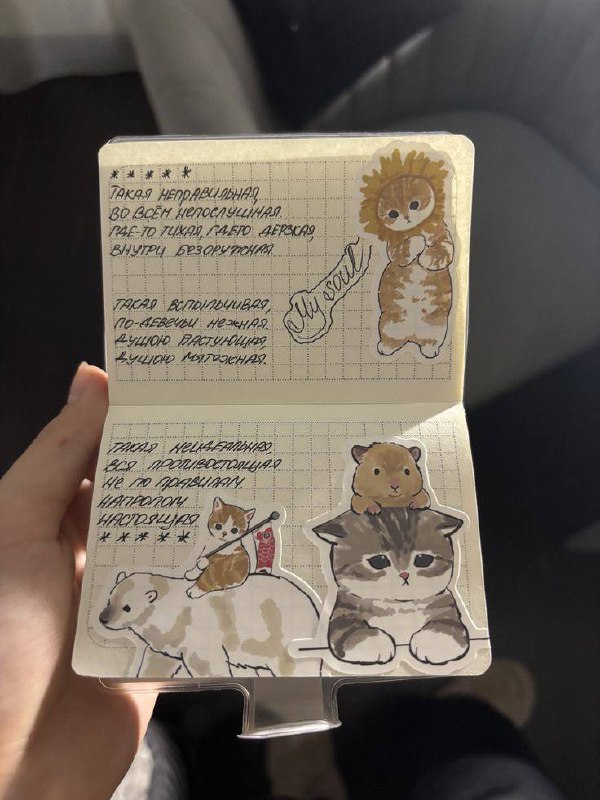 * * * * *
ТАКАЯ НЕПРАВИЛЬНАЯ,
ВО ВСЁМ НЕПОСЛУШНАЯ.
ГДЕ-ТО ТИХАЯ, ГДЕ-ТО ДЕРЗКАЯ,
ВНУТРИ БЕЗОРУЖНАЯ.
My soul
ТАКАЯ ВСПЫЛЬЧИВАЯ,
ПО-ДЕВИЧЬИ НЕЖНАЯ.
ДУШОЮ ТАНЦУЮЩАЯ,
ДУШОЮ МЯТЕЖНАЯ.
ТАКАЯ НЕИДЕАЛЬНАЯ
ВСЯ ПРОТИВОСТОЯЩАЯ
НЕ ПО ПРАВИЛАМ
НАПРОЛОМ
НАСТОЯЩАЯ
* * * * *